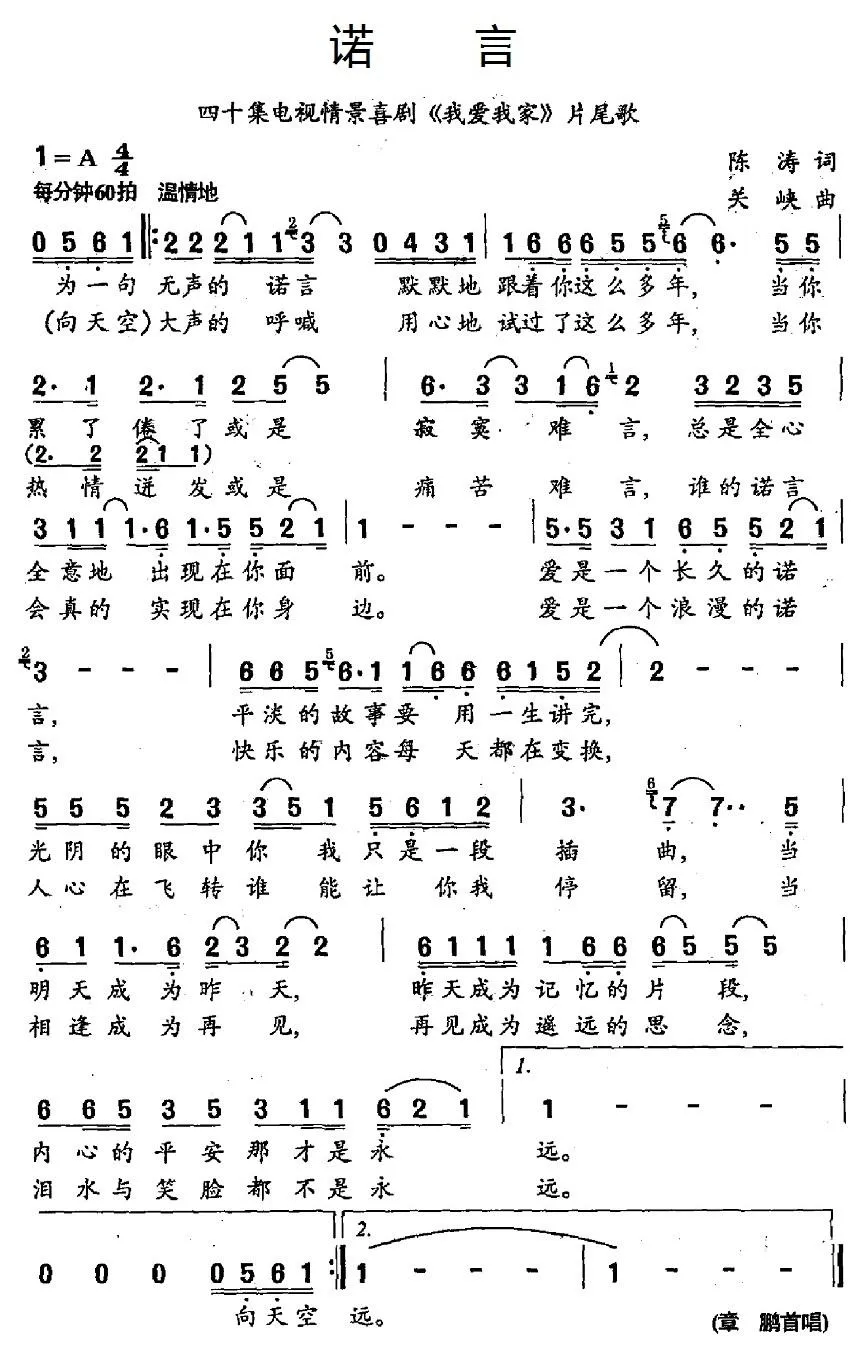 诺 言
四十集电视情景喜剧《我爱我家》片尾歌
1=A 4/4
陈 涛 词
每分钟60拍 温情地
关 峡 曲
0 5 6 1 ‖: 2 2 2 1 1 2 3 3 0 4 3 1 | 1 6 6 6 5 5 5 6 6· 5 5 |
为一句 无声的 诺言 默默地 跟着你这么多年, 当你
(向天空)大声的 呼喊 用心地 试过了这么多年, 当你
2· 1 2· 1 2 5 5 | 6· 3 3 1 6 1 2 3 2 3 5 |
累了倦了或是 寂寞 难言, 总是全心
(2· 2 2 1 1)
热情迸发或是 痛苦 难言, 谁的诺言
3 1 1 1·6 1·5 5 2 1 | 1 - - - | 5·5 3 1 6 5 5 2 1 |
全意地 出现在你面 前。 爱是一个长久的诺
会真的 实现在你身 边。 爱是一个浪漫的诺
2 3 - - - | 6 6 5 5 6·1 1 6 6 6 1 5 2 | 2 - - - |
言, 平淡的故事要 用一生讲完,
言, 快乐的内容每 天都在变换,
5 5 5 2 3 3 5 1 5 6 1 2 | 3· 6 7 7·· 5 |
光阴的眼中你 我只是一段 插 曲, 当
人心在飞转谁 能让 你我 停 留, 当
6 1 1· 6 2 3 2 2 | 6 1 1 1 1 6 6 6 5 5 5 |
明天成为昨 天, 昨天成为记忆的片 段,
相逢成为再 见, 再见成为遥远的思 念,
1.
6 6 5 3 5 3 1 1 6 2 1 | 1 - - -
内心的平安那才是永 远。
泪水与笑脸都不是永 远。
2.
0 0 0 0 5 6 1 :‖ 1 - - - | 1 - - - ‖
向天空 远。
(章 鹏首唱)